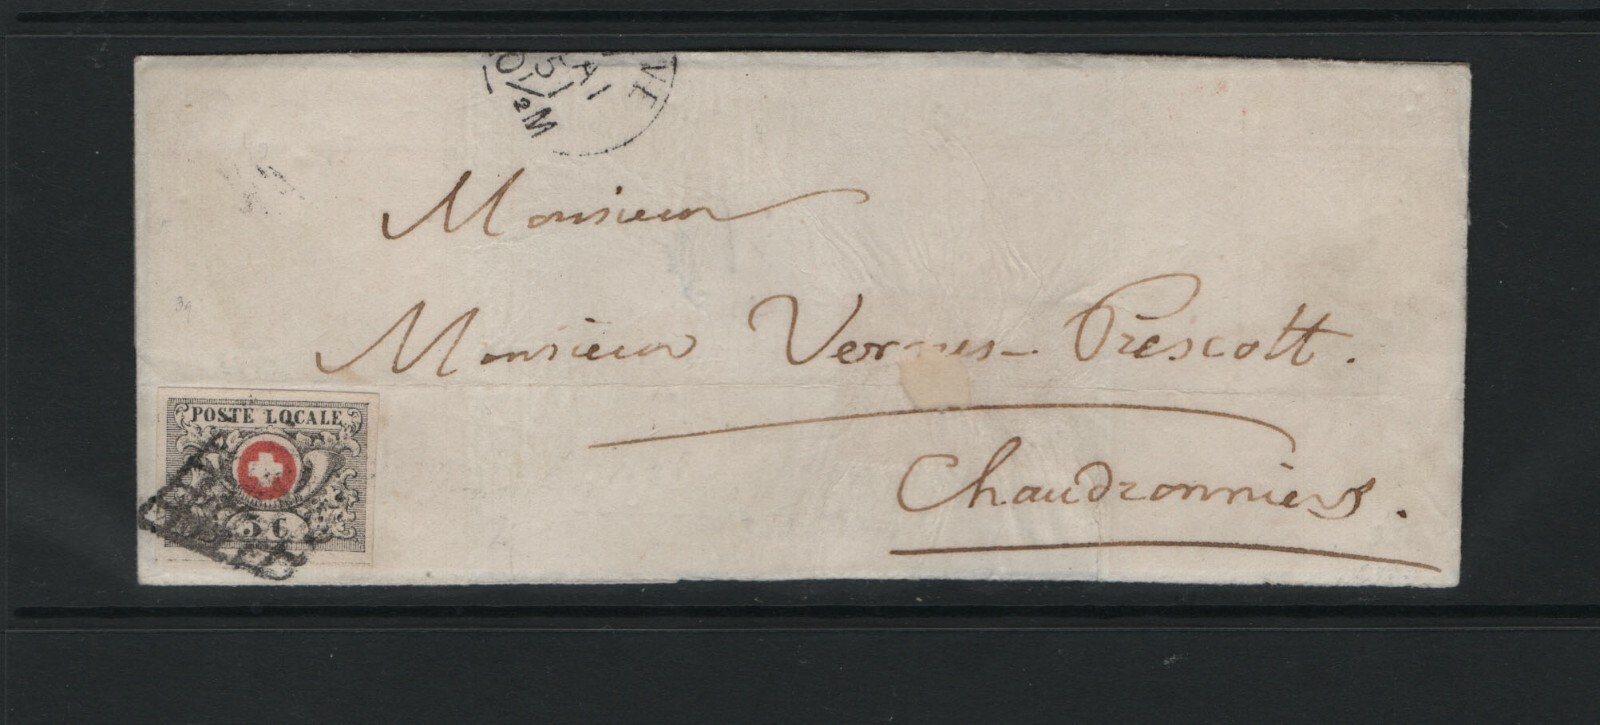 NE
AI
51
10½M
Monsieur
Monsieur Vernes-Prescott.
Chaudronniers.
POSTE LOCALE
5 C